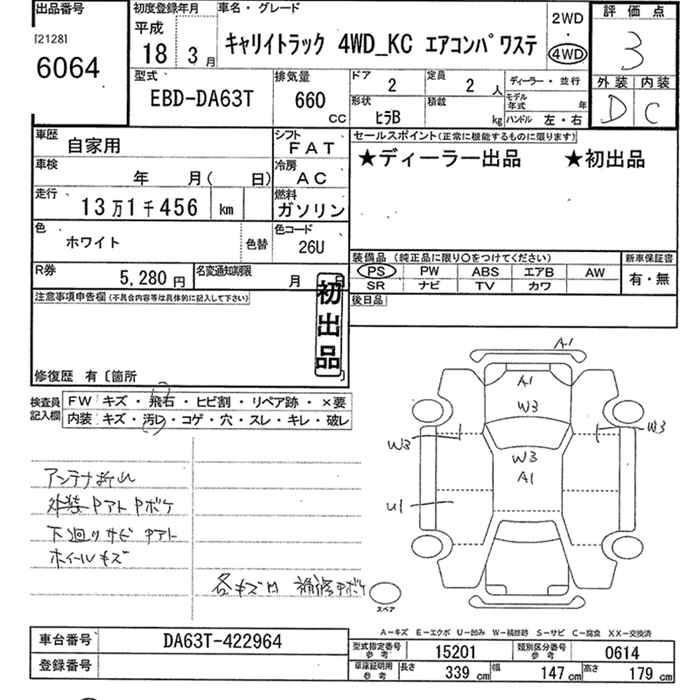 出品番号
[2128]
6064
初度登録年月
平成
18年 3月
車名・グレード
キャリイトラック 4WD_KC エアコンパワステ
2WD
・
4WD
評価点
3
外装 内装
D C
型式
EBD-DA63T
排気量
660 CC
ドア
2
定員
2人
形状
ヒラB
積載
kg
ディーラー・並行
モデル年式 年
ハンドル 左・右
車歴
自家用
シフト
FAT
車検
年 月( 日)
冷房
AC
走行
13万1千456 km
燃料
ガソリン
色
ホワイト
色替
色コード
26U
R券
5,280円
名変通知期限
月
セールスポイント(正常に機能するものに限ります)
★ディーラー出品 ★初出品
装備品 (純正品に限り○をつけてください)
PS PW ABS エアB AW
SR ナビ TV カワ
新車保証書
有・無
後日品
注意事項申告欄(不具合内容等は具体的に記入して下さい)
初出品
修復歴 有〔箇所
検査員記入欄
FW キズ・飛石・ヒビ割・リペア跡・×要
内装 キズ・汚レ・コゲ・穴・スレ・キレ・破レ
アンテナ折れ
外装PアトPボケ
下廻りサビPアト
ホイールキズ
各キズ凹 補修Pボケ
A1
A1
W3
W3
W3
W3
A1
U1
スペア
A－キズ E－エクボ U－凹み W－補修跡 S－サビ C－腐食 XX－交換済
車台番号
DA63T-422964
登録番号
型式指定番号 参考
15201
類別区分番号 参考
0614
車庫証明用 参考
長さ 339 cm
幅 147 cm
高さ 179 cm